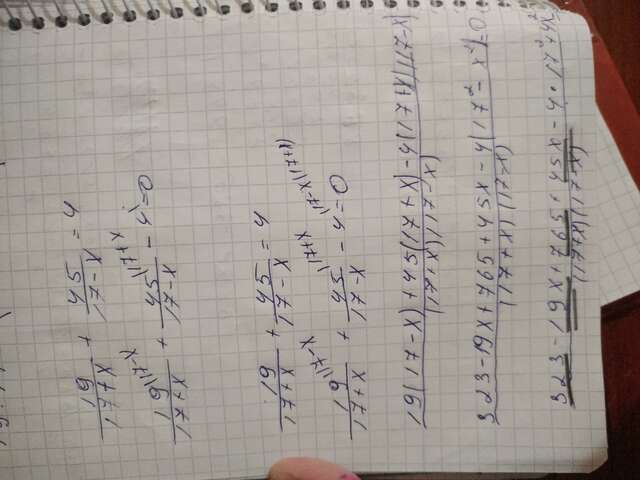 19/(17+x) + 45/(17-x) = 4
19\17-x/(17+x) + 45\17+x/(17-x) - 4 = 0
19/(17+x) + 45/(17-x) = 4
19\17-x/(17+x) + 45\17+x/(17-x) - 4\(17-x)(17+x) = 0
19(17-x)+45(17+x)-4(17+x)(17-x)
(17+x)(17-x)
323-19x+765+45x-4(17²-x²)=0
(17+x)(17-x)
323-19x+765+45x-4·17²+4x²
(17+x)(17-x)